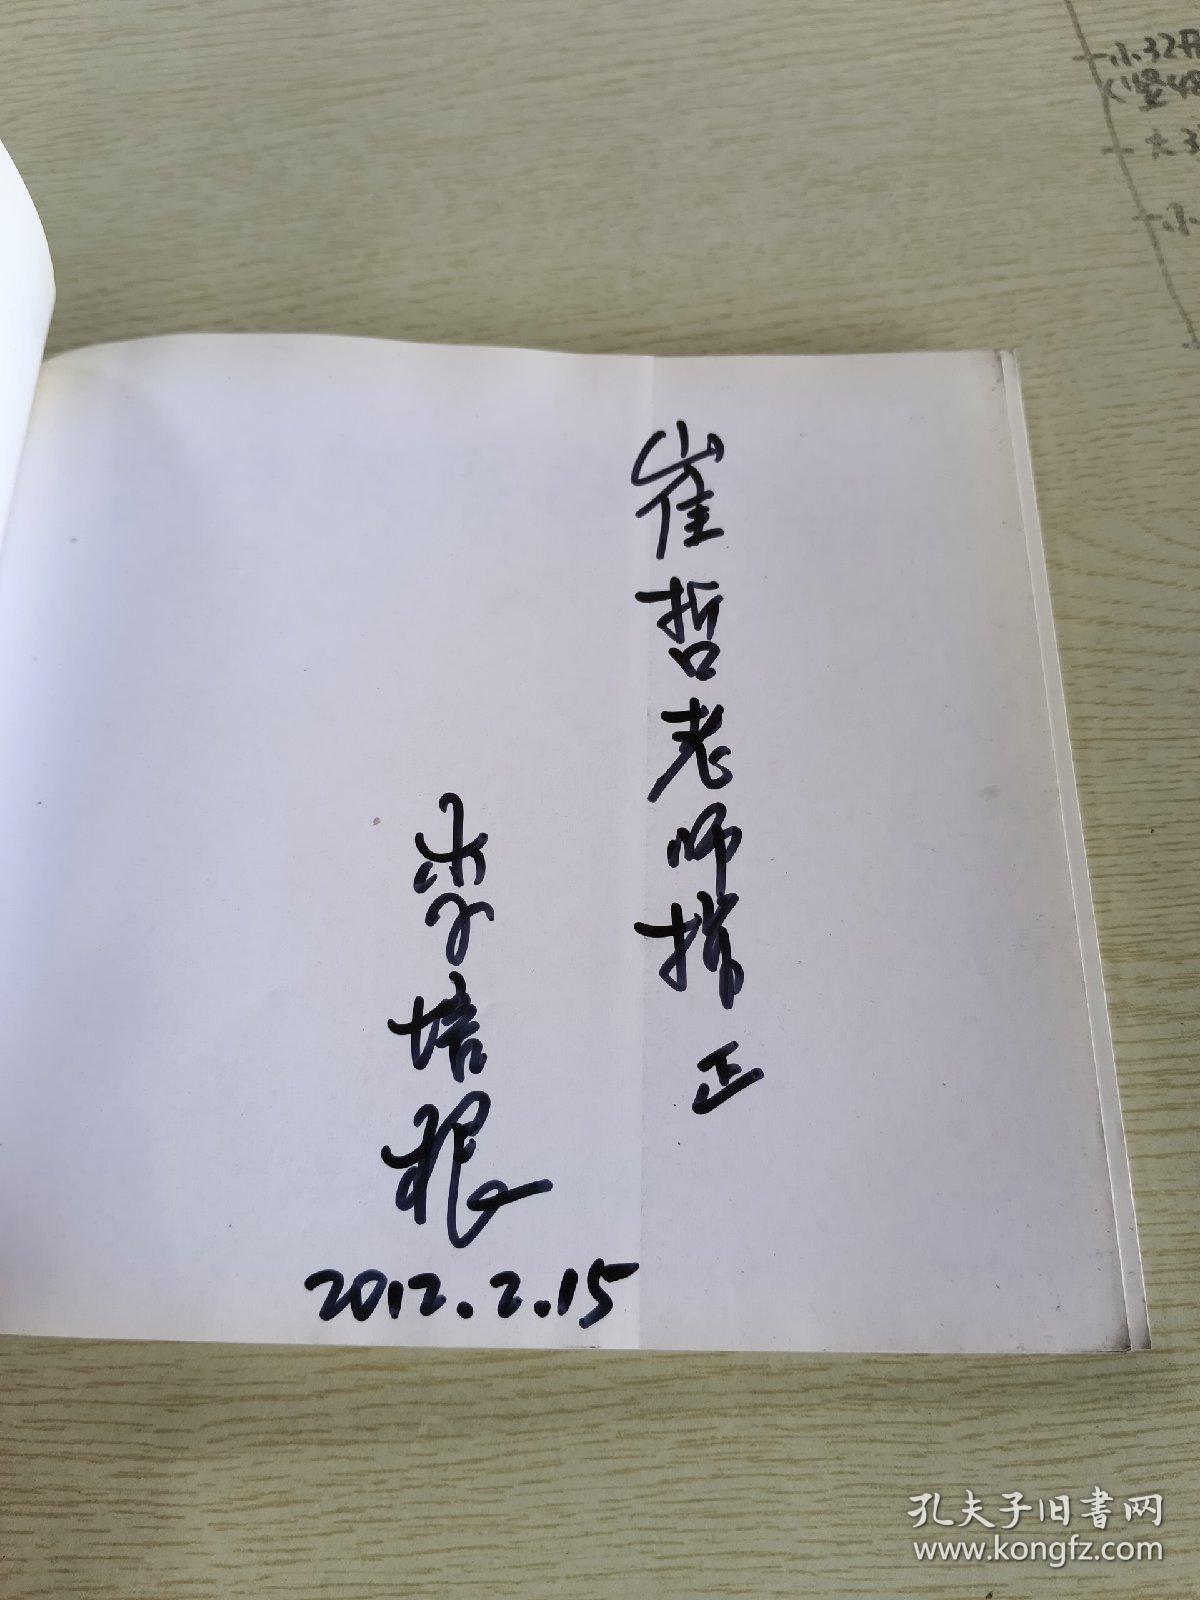 崔哲老师指正
李培根
2012.2.15
小32开
大3
小
孔夫子旧书网
www.kongfz.com